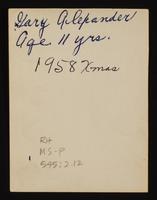 Gary Alexander
Age. 11 yrs.
1958 Xmas
RH
MS-P
545:2.12